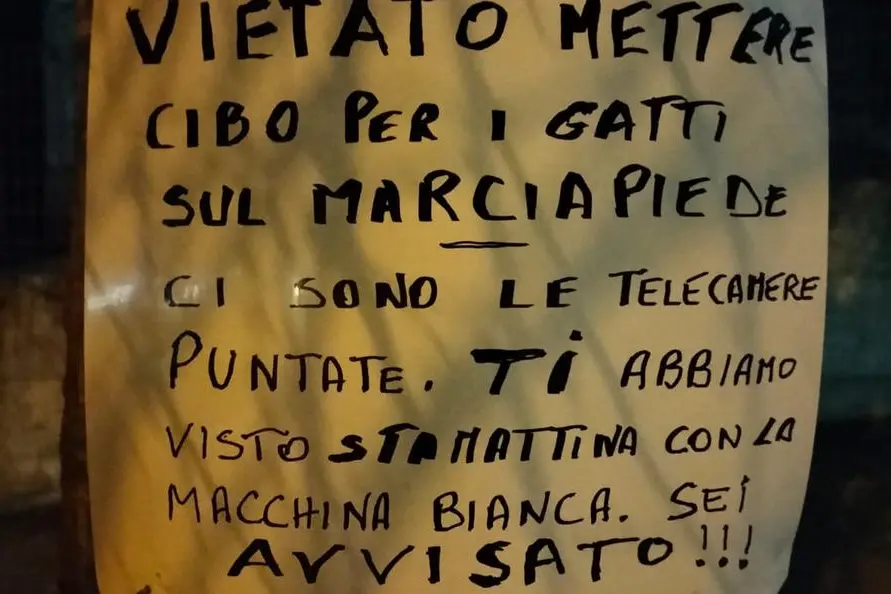 VIETATO METTERE
CIBO PER I GATTI
SUL MARCIAPIEDE
CI SONO LE TELECAMERE
PUNTATE. Ti ABBIAMO
VISTO STAMATTINA CON LA
MACCHINA BIANCA. SEi
AVVISATO!!!